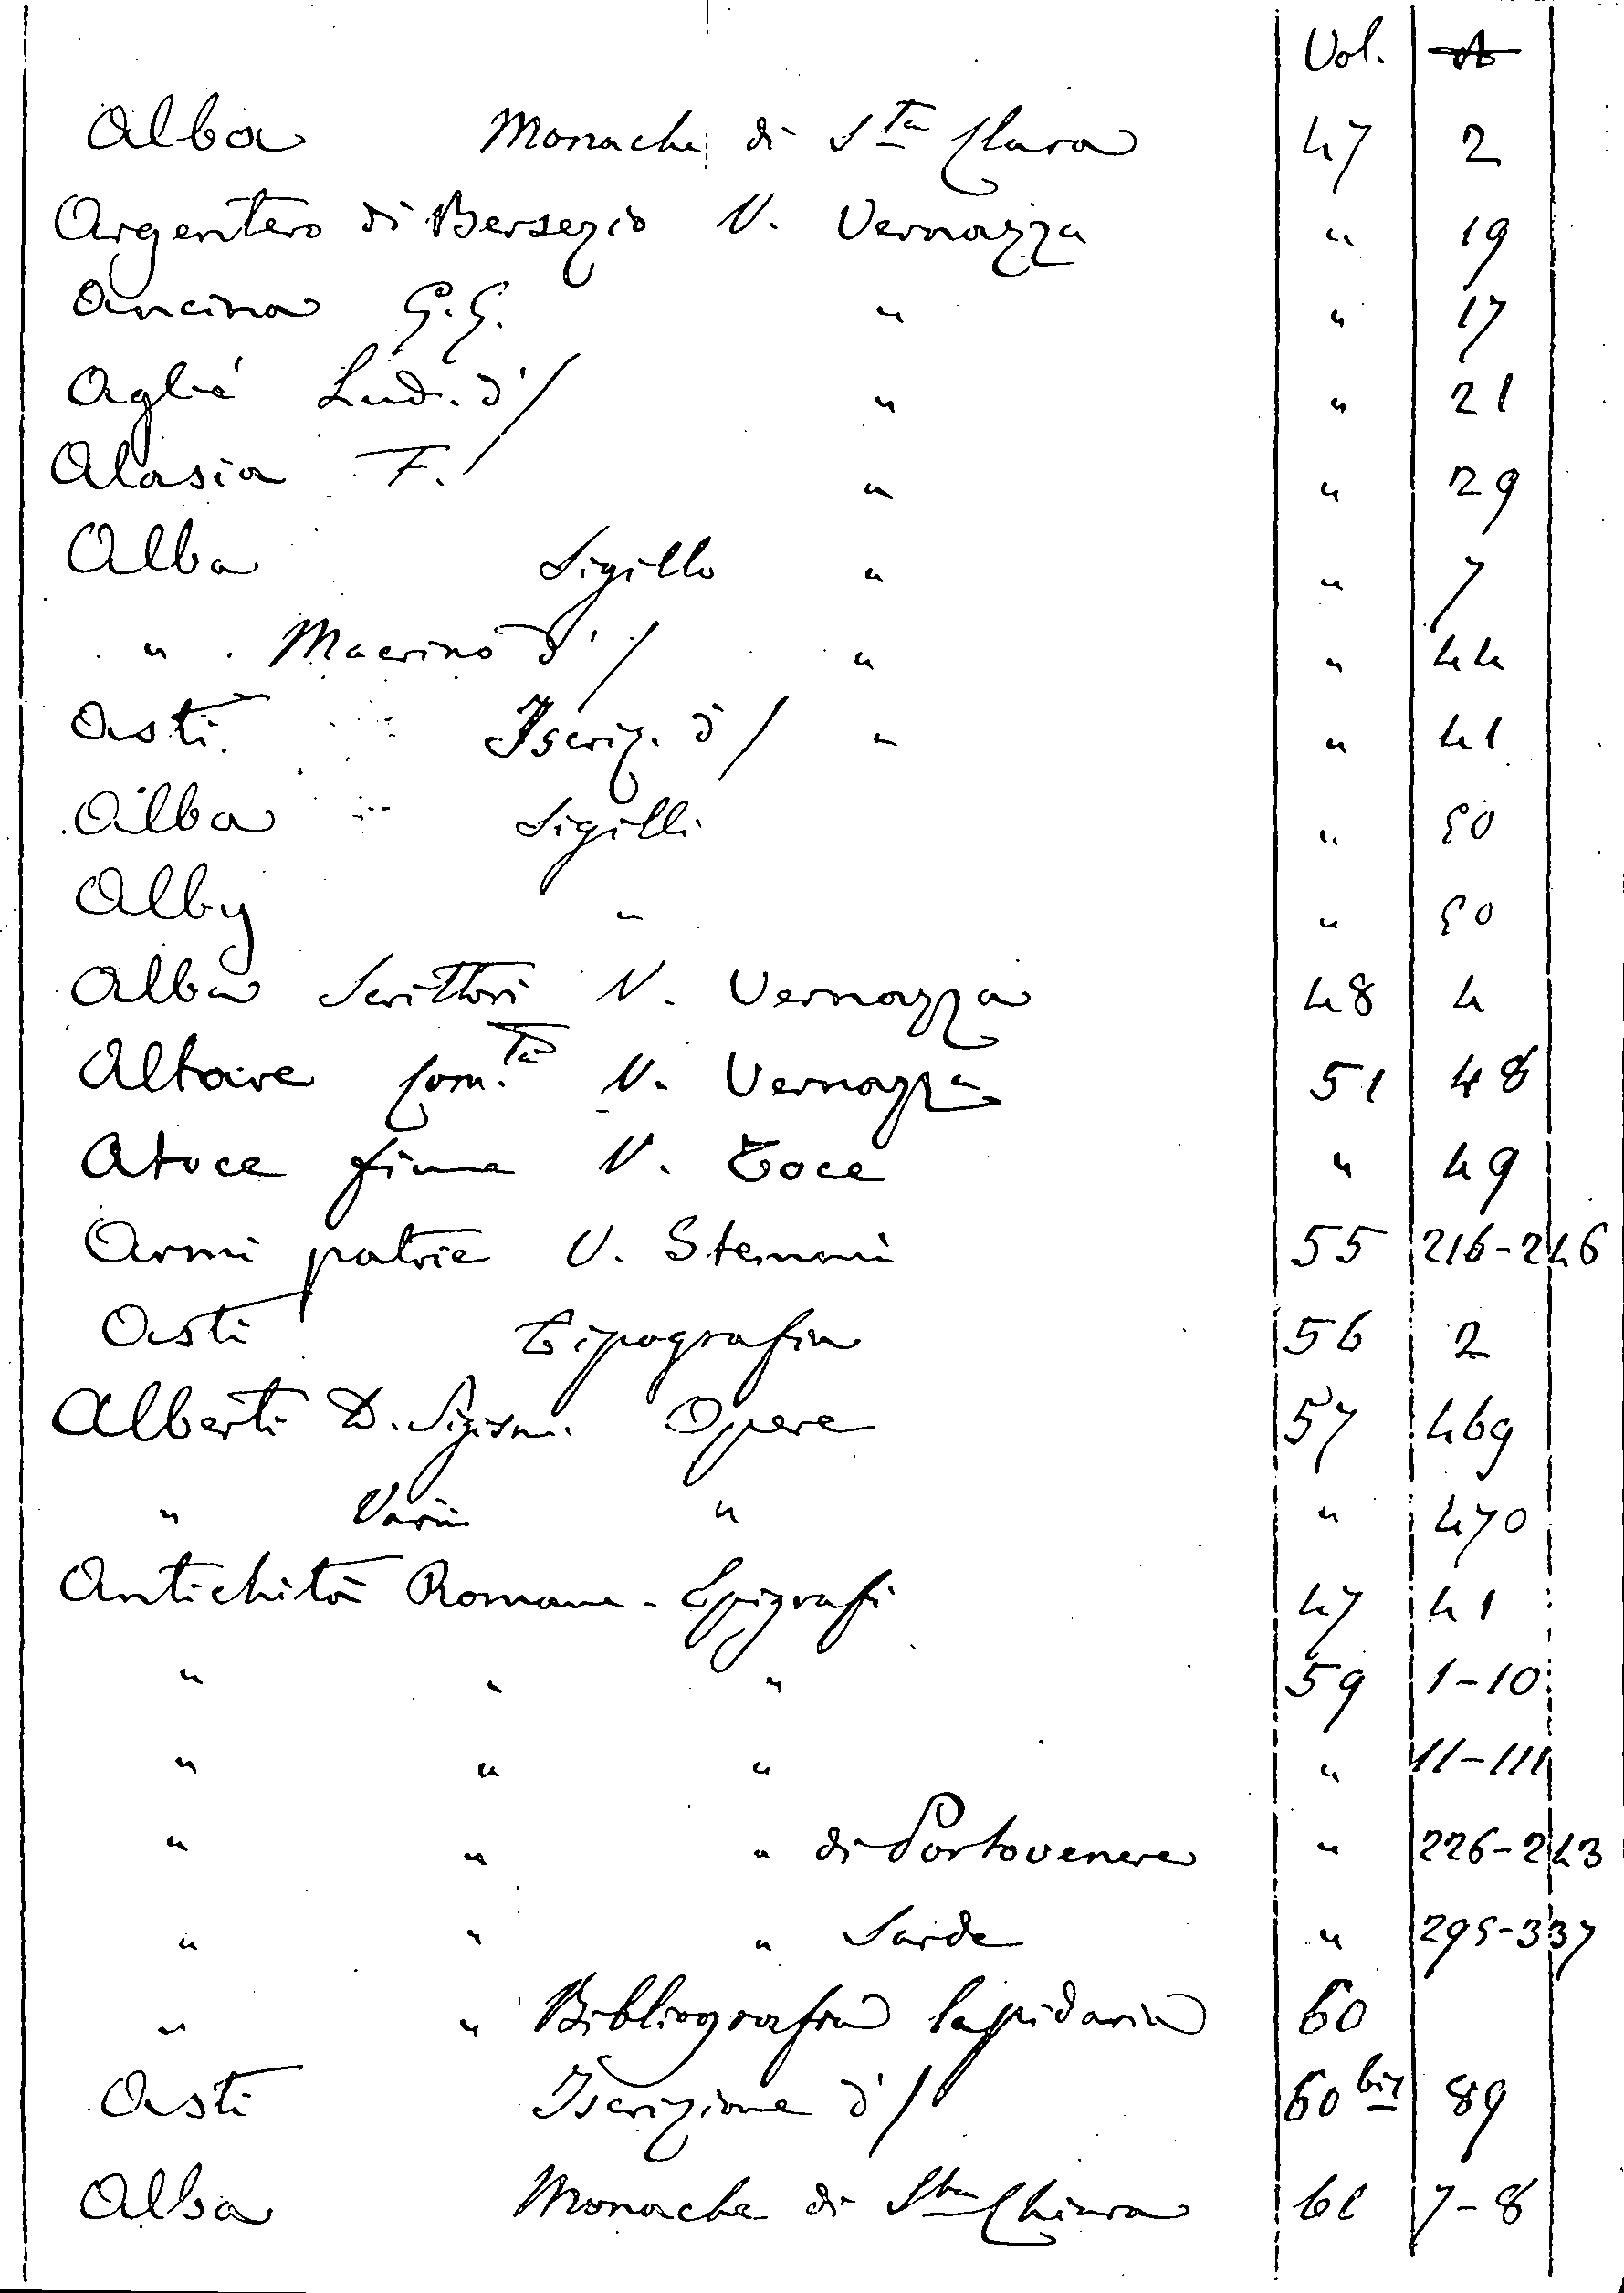 Vol. A
Alba Monache di Sta Clara 47 2
Argentero di Bersezio V. Vernazza " 19
Ancina G.G. " " 17
Agliè Lud. d'/ " " 21
Alasia F. " " 29
Alba Sigillo " " 7
" Macrino d'/ " " 44
Asti Iscriz. d/ " " 41
Alba Sigilli " 50
Alby " " 50
Alba Scrittori V. Vernazza 48 4
Altare Com.tà V. Vernazza 51 48
Atoce fiume V. Toce " 49
Armi patrie V. Stemmi 55 216-246
Asti Tipografia 56 2
Alberti D. Sigism. Opere 57 469
" Varii " " 470
Antichità Romane - Epigrafi 47 41
" " " 59 1-10
" " " " 11-111
" " " di Portovenere " 226-243
" " " Sarde " 295-337
" " Bibliografia lapidaria 60
Asti Iscrizione d'/ 60 bis 89
Alba Monache di Sta Chiara 61 7-8